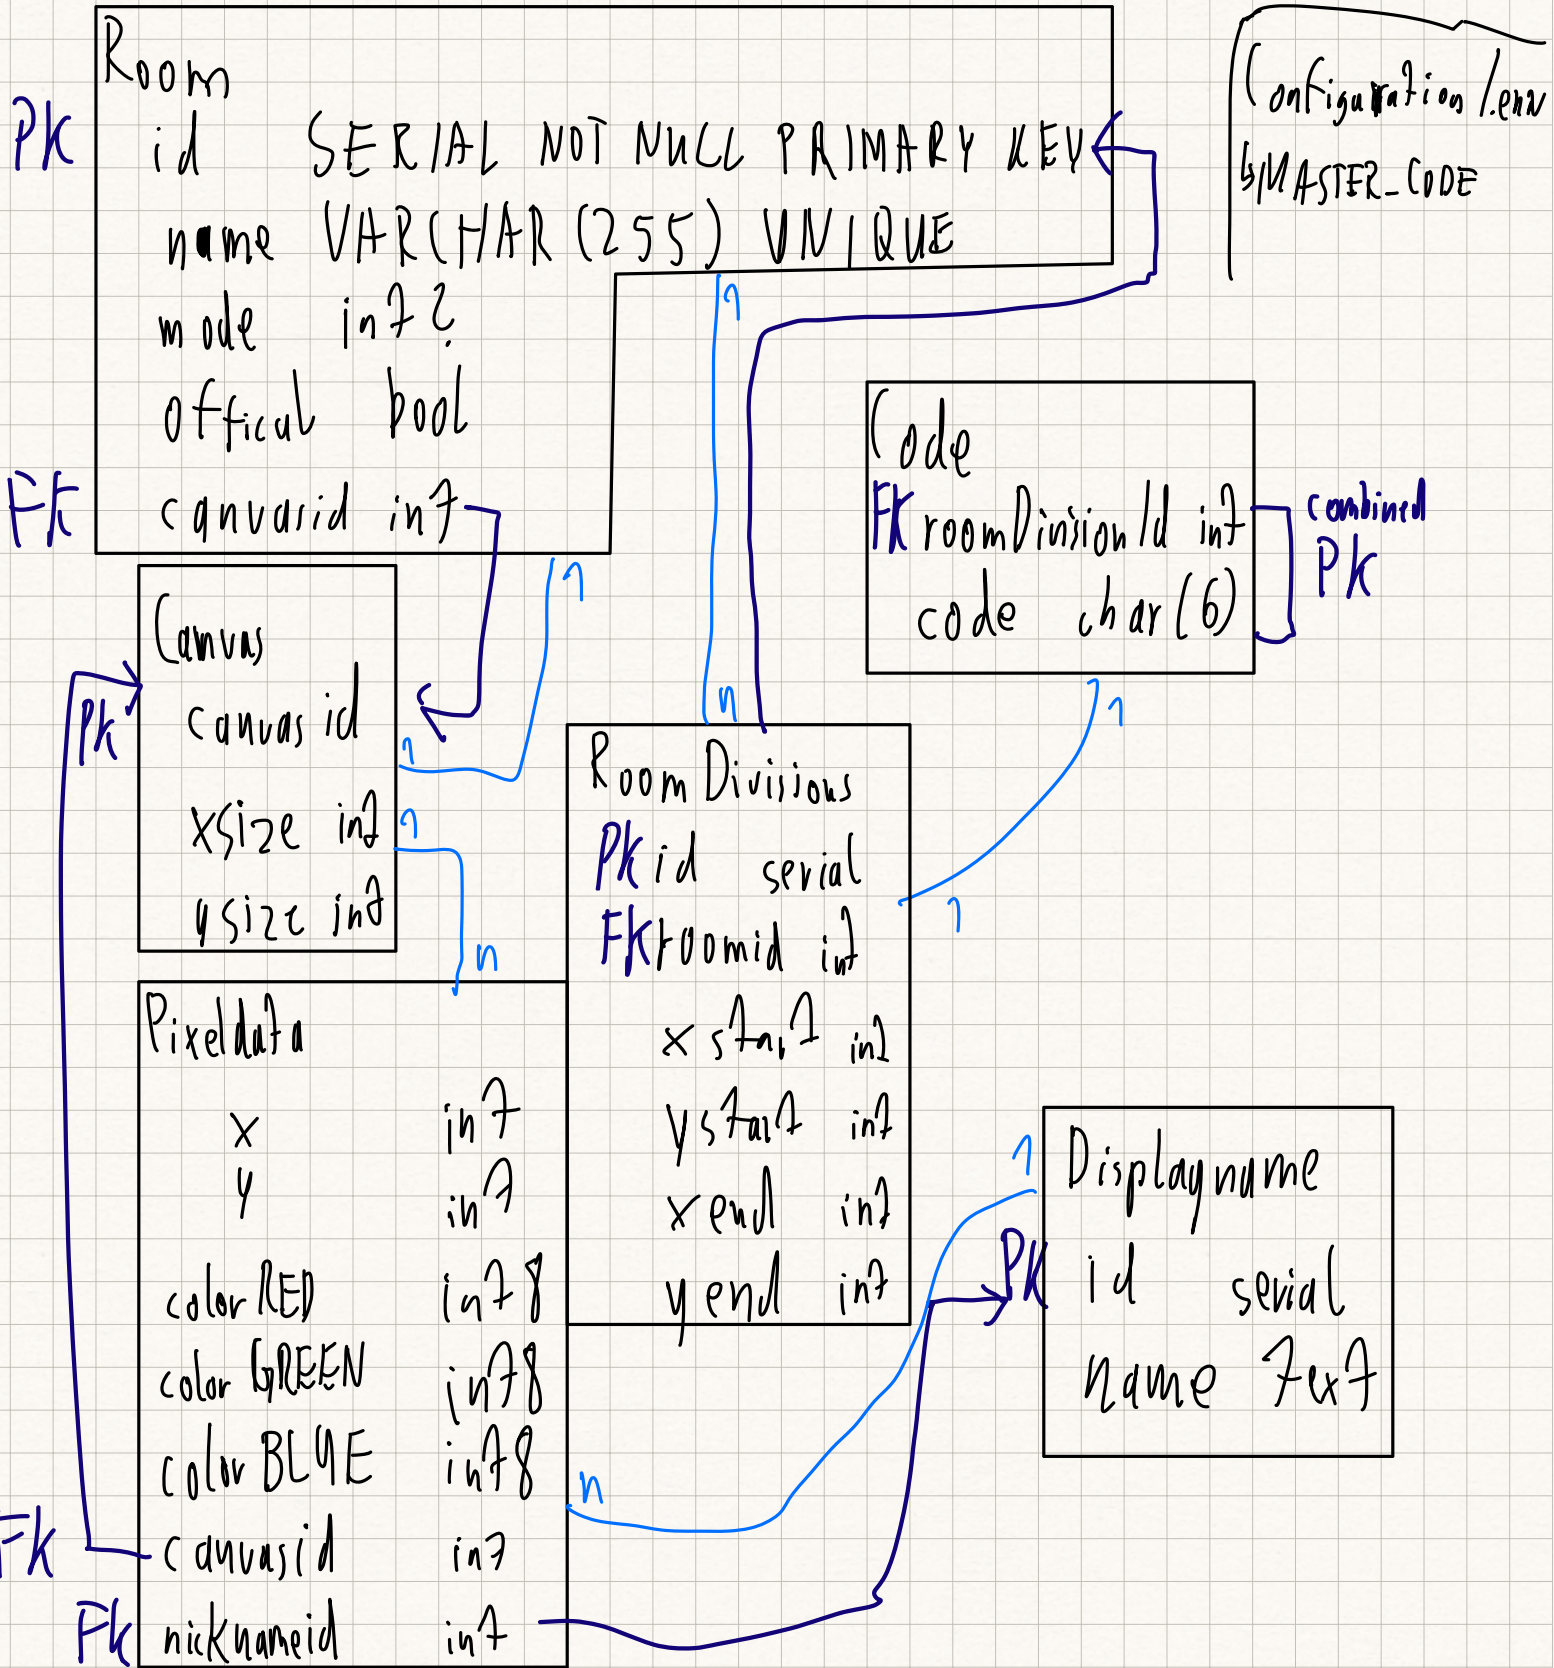 Room
PK id SERIAL NOT NULL PRIMARY KEY
name VARCHAR(255) UNIQUE
mode int?
offical bool
FK canvasid int
Configuration/.env
↳MASTER_CODE
1
n
1
1
Code
FK roomDivisionId int
code char(6)
combined
PK
1
1
Canvas
PK canvasid
xsize int
ysize int
1
n
RoomDivisions
PK id serial
FK roomid int
xstart int
ystart int
xend int
yend int
Pixeldata
x int
y int
colorRED int8
colorGREEN int8
colorBLUE int8
FK canvasid int
FK nicknameid int
n
1
Displayname
PK id serial
name text